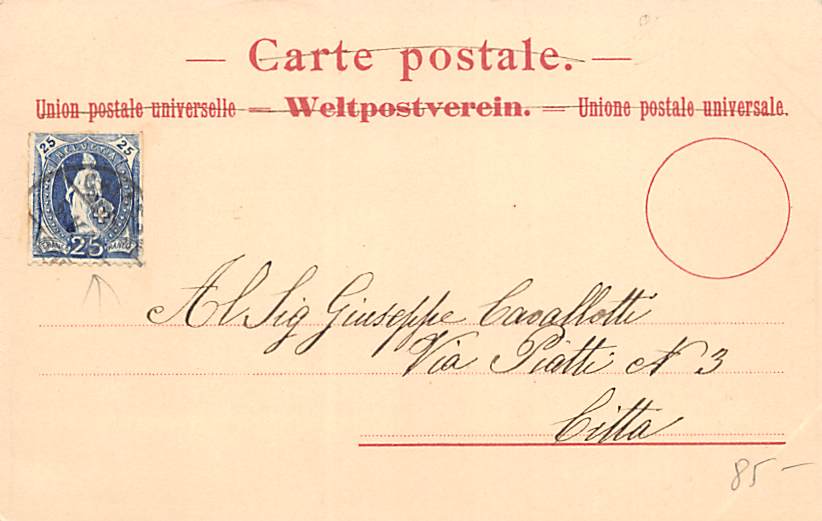 — Carte postale. —
Union postale universelle = Weltpostverein. = Unione postale universale.
25 HELVETIA 25
FRANCO 25 FRANCO
Al Sig Giuseppe Cavallotti
Via Piatti N 3
Citta
85 –